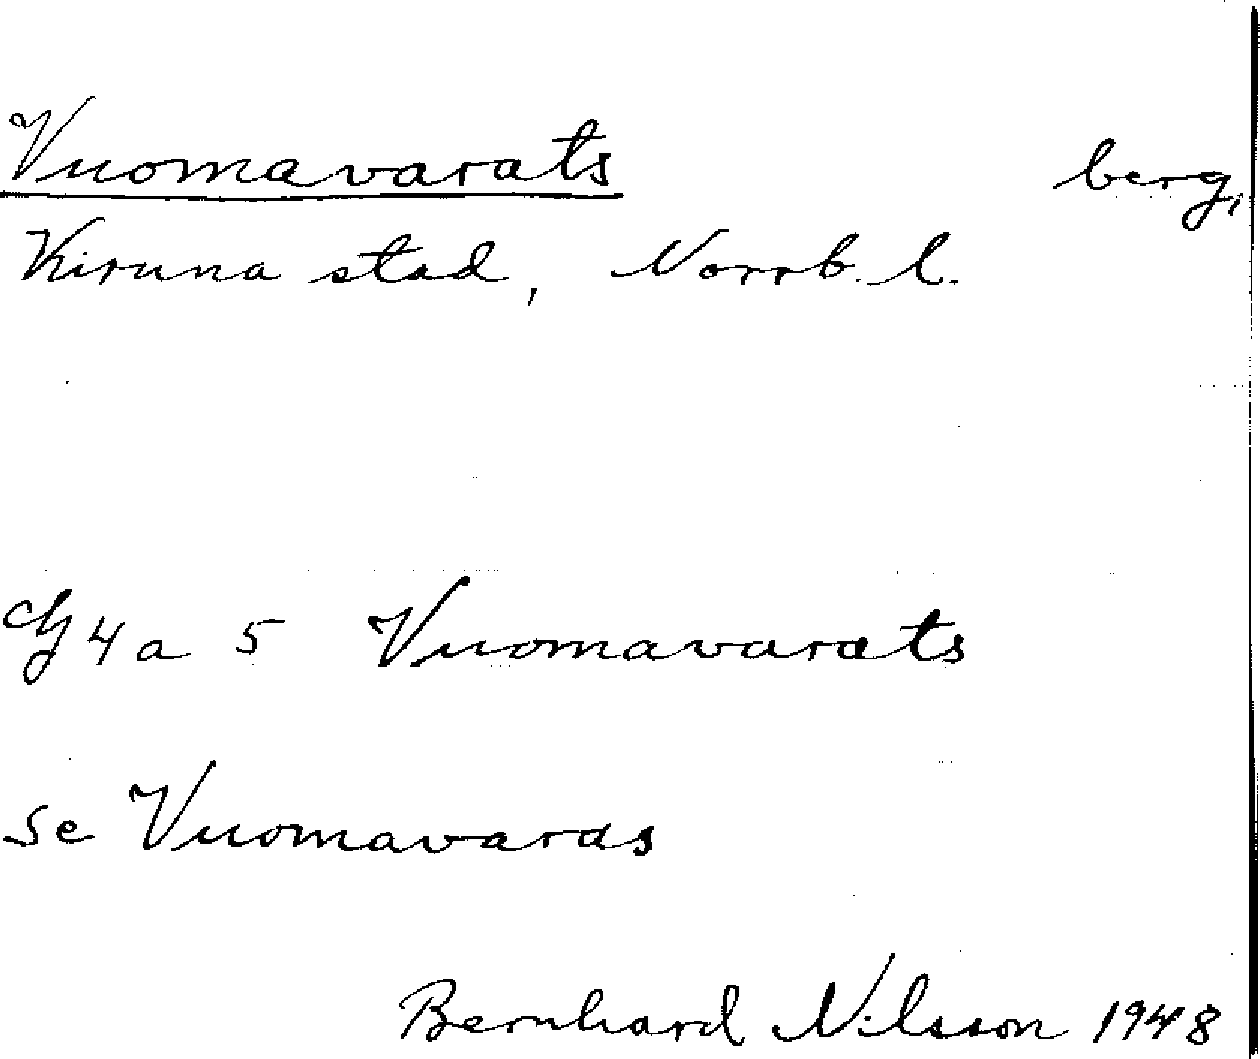 Vuomavarats berg,
Kiruna stad, Norrb. l.
G 4 a 5 Vuomavarats
se Vuomavaras
Bernhard Nilsson 1948